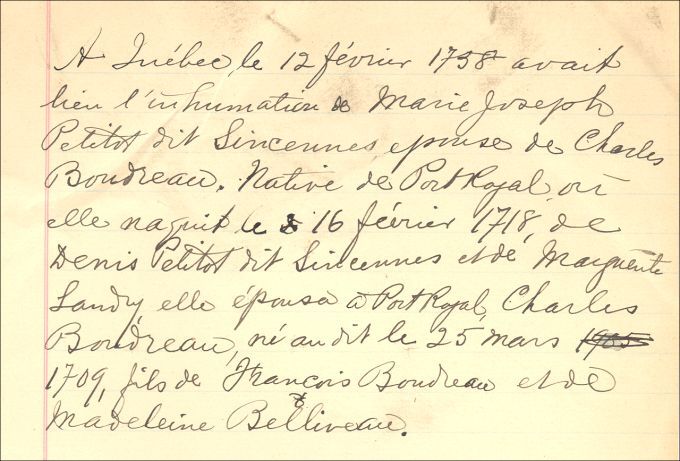 A Québec, le 12 février 1758 avait
lieu l'inhumation de Marie Joseph
Petitot dit Sincennes, epouse de Charles
Boudreau. Native de Port Royal, où
elle naquit le 16 février 1718, de
Denis Petitot dit Sincennes et de Marguerite
Landry, elle épousa à Port Royal, Charles
Boudreau, né au dit le 25 mars
1709, fils de François Boudreau et de
Madeleine Belliveau.